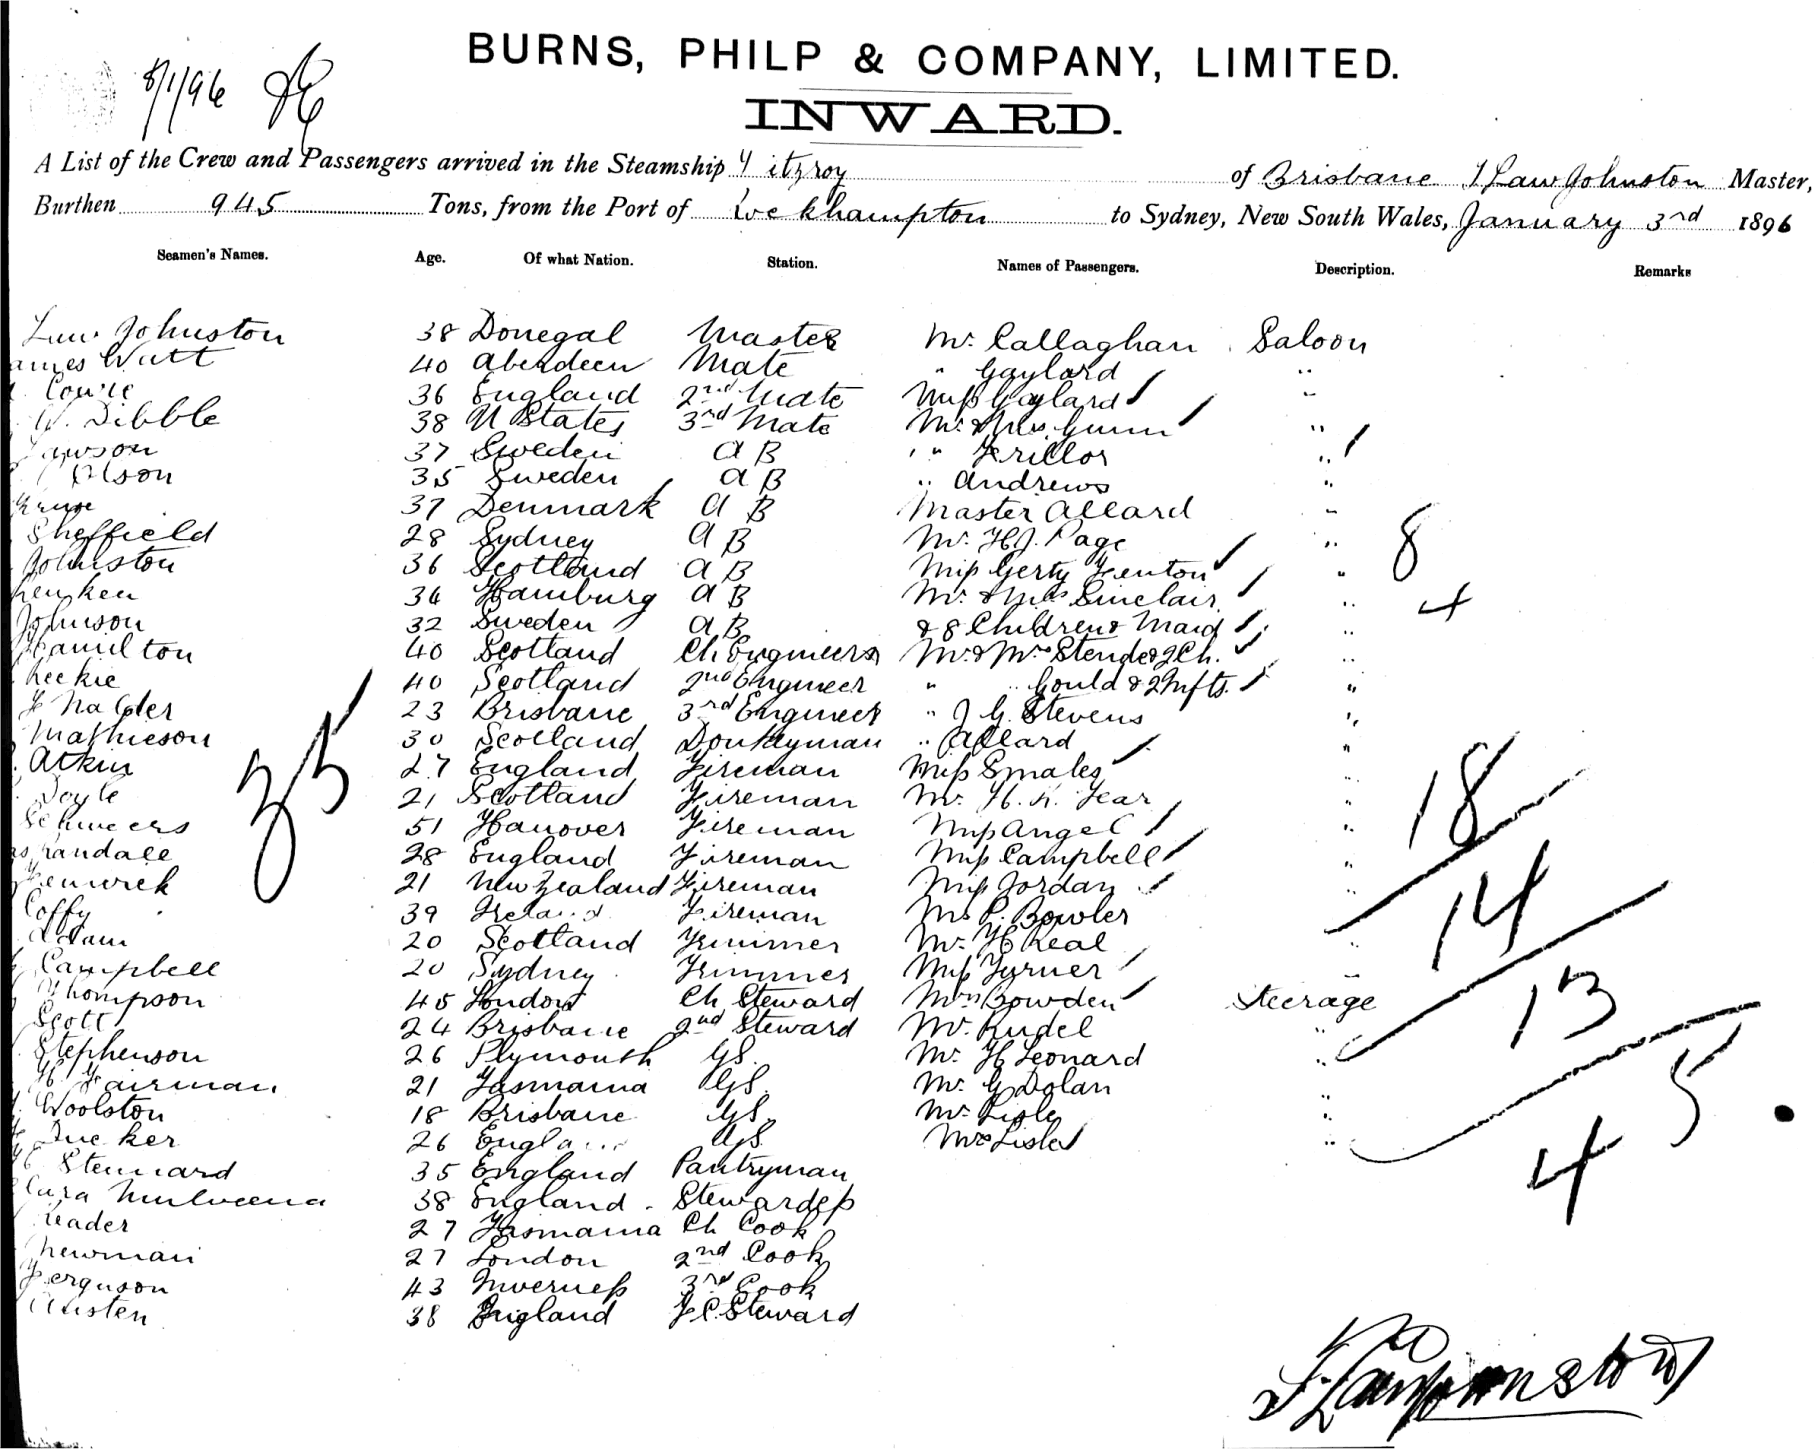 BURNS, PHILP & COMPANY, LIMITED.
8/1/96
INWARD.
A List of the Crew and Passengers arrived in the Steamship Fitzroy of Brisbane F Law Johnston Master,
Burthen 945 Tons, from the Port of Rockhampton to Sydney, New South Wales, January 3rd 1896
Seamen's Names. Age. Of what Nation. Station. Names of Passengers. Description. Remarks
Law Johnston 38 Donegal Master Mr. Callaghan Saloon
ames Watt 40 Aberdeen Mate " Gaylard "
Cowie 36 England 2nd Mate Miss Gaylard "
W. Dibble 38 U States 3rd Mate Mr. & Mrs. Gunn "
Lawson 37 Sweden A B " " Frillor "
Olson 35 Sweden A B " Andrews "
37 Denmark A B Master Allard "
Sheffield 28 Sydney A B Mr. H.J. Page " 8
Johnston 36 Scotland A B Miss Gerty Fenton "
36 Hamburg A B Mr. & Mrs Sinclair " 4
Johnson 32 Sweden A B & 8 Children & Maid "
Hamilton 40 Scotland Ch Engineer Mr & Mrs Stende & 2 Ch. "
Reekie 40 Scotland 2nd Engineer " " Gould & 2 Infts. "
23 Brisbane 3rd Engineer " J G. Stevens "
Mathieson 30 Scotland Donkeyman " Allard "
35
Atkin 27 England Fireman Miss Smales "
Doyle 21 Scotland Fireman Mr. H. K. Fear 18
Schweers 51 Hanover Fireman Miss Angel "
Randall 28 England Fireman Miss Campbell "
Fenwick 21 New Zealand Fireman Miss Jordan "
Coffy 39 Ireland Fireman Mr P. Bowler 14
Adam 20 Scotland Trimmer Mr. H Real "
Campbell 20 Sydney Trimmer Miss Turner "
Thompson 45 London Ch Steward Mrs Bowden Steerage 13
Scott 24 Brisbane 2nd Steward Mr. Rudel "
Stephenson 26 Plymouth GS. Mr. H Leonard "
H Fairman 21 Tasmania GS. Mr. G Dolan "
Woolston 18 Brisbane GS. Mr. Lisle "
Tucker 26 England GS. Mrs Lisle " 45
Stennard 35 England Pantryman
38 England. Stewardess
Reader 27 Tasmania Ch Cook
Newman 27 London 2nd Cook
Ferguson 43 Inverness 3rd Cook
Austen 38 England F C. Steward
F. Law Johnston